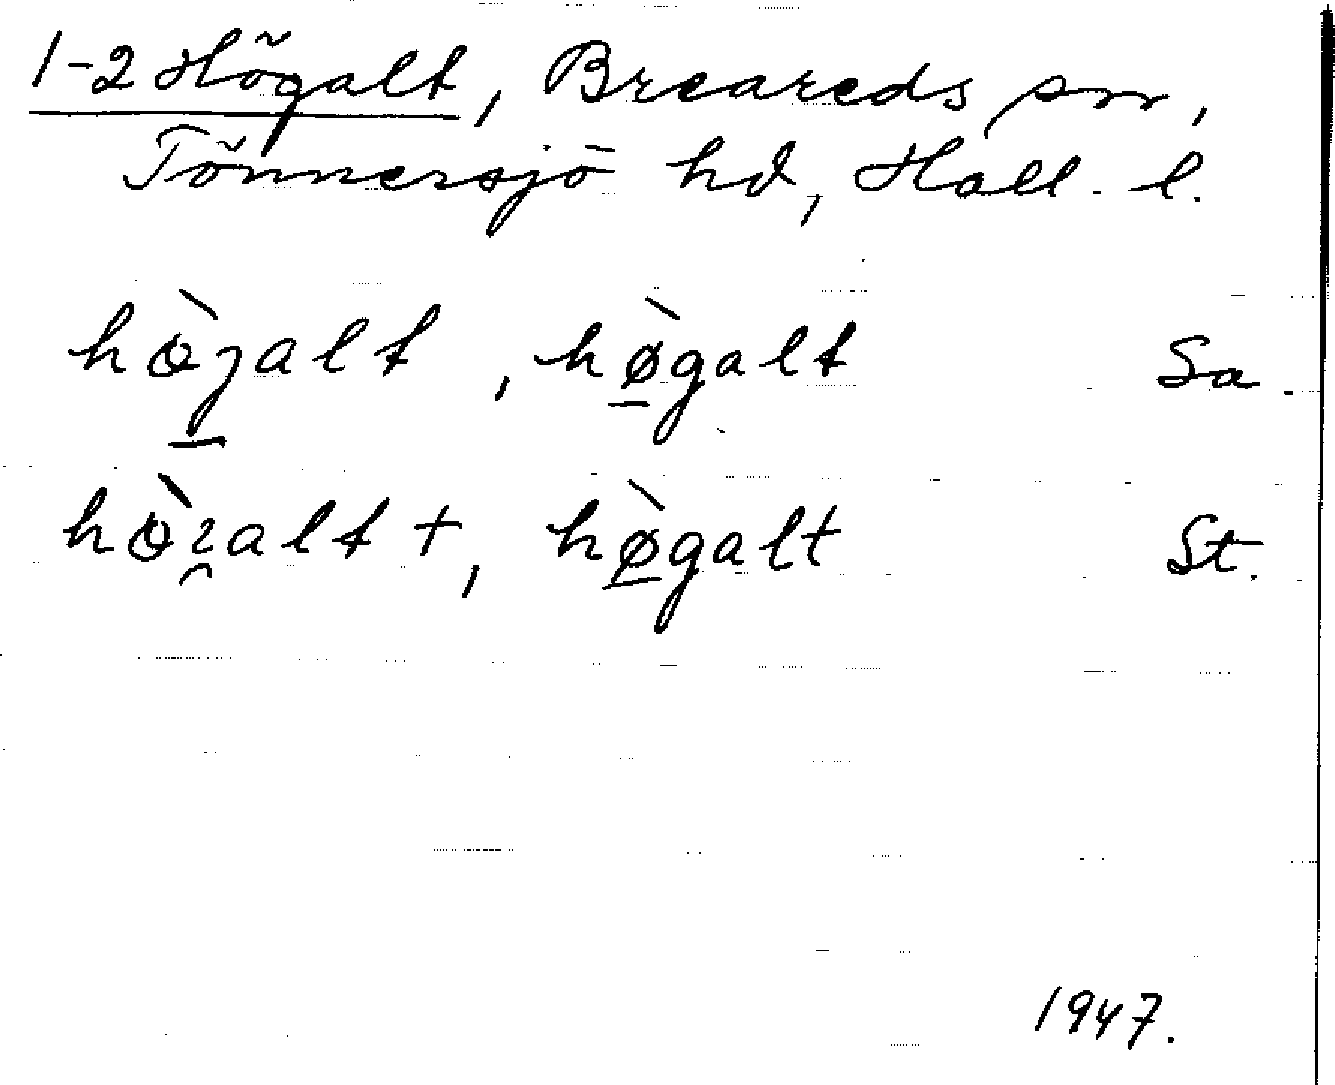 1-2 Högalt, Breareds sn,
Tönnersjö hd, Hall. l.
hö̀galt, hø̠̀galt Sa
hö̀ꝛalt +, hø̠̀galt St.
1947.